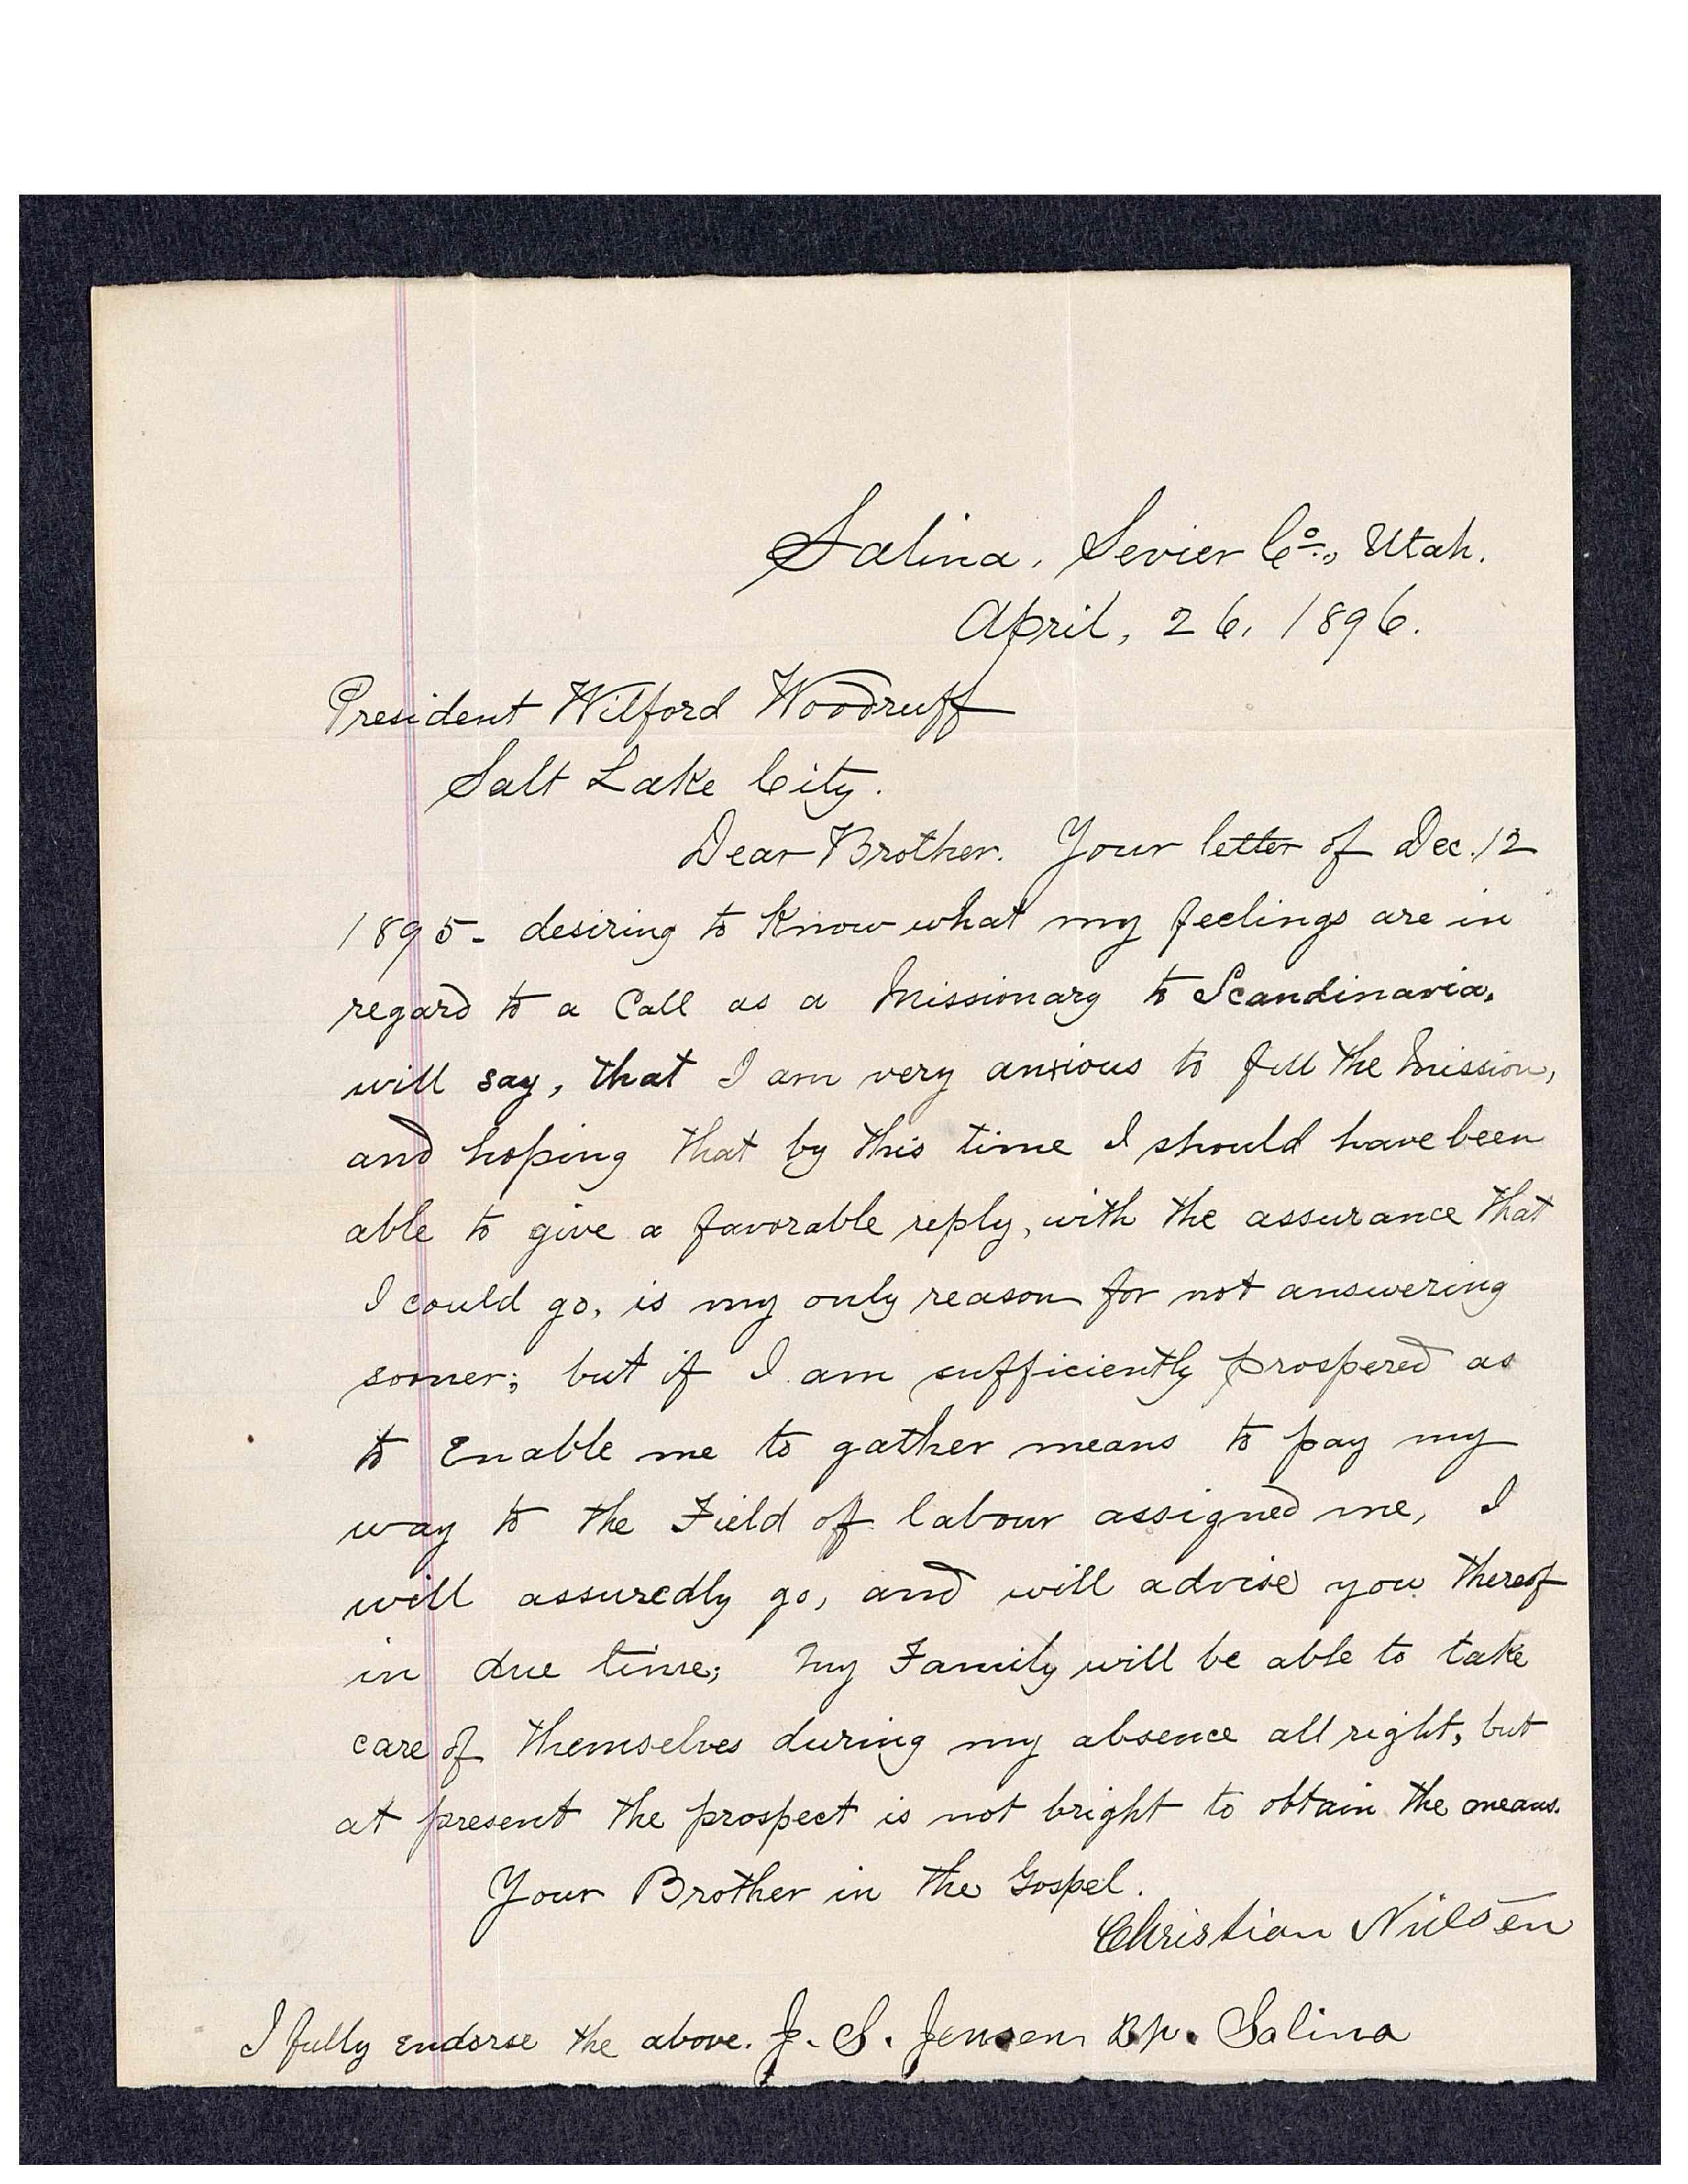 Salina, Sevier Co., Utah.
April, 26, 1896.
President Wilford Woodruff
Salt Lake City.
Dear Brother. Your letter of Dec. 12
1895- desiring to Know what my feelings are in
regard to a Call as a Missionary to Scandinavia.
will say, that I am very anxious to fill the Mission,
and hoping that by this time I should have been
able to give a favorable reply, with the assurance that
I could go, is my only reason for not answering
sooner; but if I am sufficiently prospered as
to Enable me to gather means to pay my
way to the Field of labour assigned me, I
will assuredly go, and will advise you thereof
in due time; My Family will be able to take
care of themselves during my absence all right, but
at present the prospect is not bright to obtain the means.
Your Brother in the Gospel.
Christian Nielsen
I fully Endorse the above. J. S. Jensen Bp. Salina